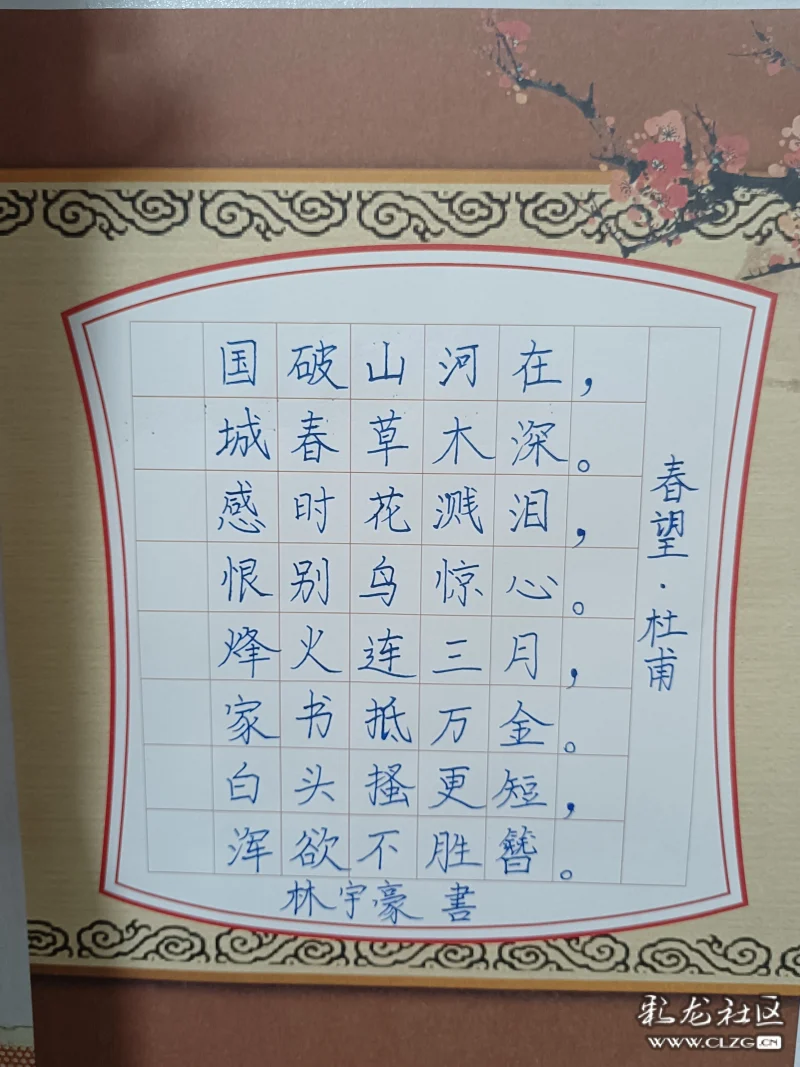 春望·杜甫
国破山河在，
城春草木深。
感时花溅泪，
恨别鸟惊心。
烽火连三月，
家书抵万金。
白头搔更短，
浑欲不胜簪。
林宇豪 書
彩龙社区
WWW.CLZG.CN